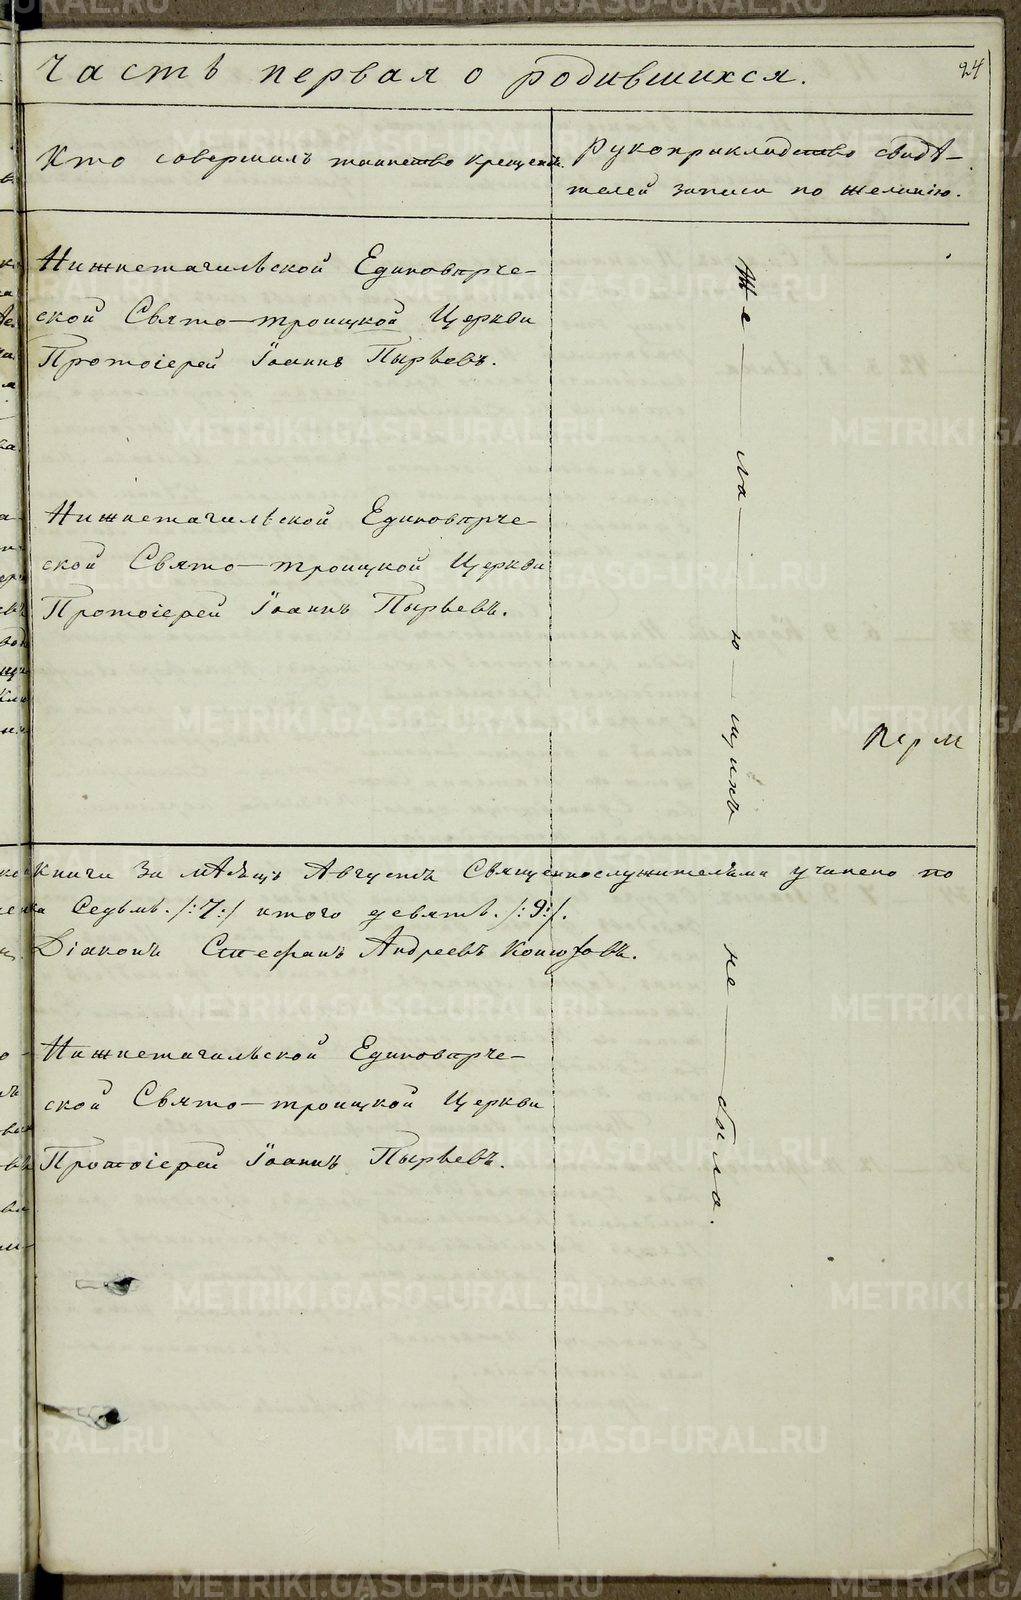 Часть первая о родившихся.
24
Кто совершилъ таинство крещенія.
Рукоприкладство свидѣ-
телей записи по желанію.
Нижнетагильской Единовѣрче-
ской Свято-троицкой Церкви
Протоіерей Іоаннъ Пырьевъ.
Нижнетагильской Единовѣрче-
ской Свято-троицкой Церкви
Протоіерей Іоаннъ Пырьевъ.
Же-ла-ю-щихъ не было.
Перм
книги за мѣсяцъ Августъ Священнослужителями учинено по
Седьмь. /:7:/ итого девять. /:9:/.
Діаконъ Стефанъ Андреевъ
Нижнетагильской Единовѣрче-
ской Свято-троицкой Церкви
Протоіерей Іоаннъ Пырьевъ.
METRIKI.GASO-URAL.RU